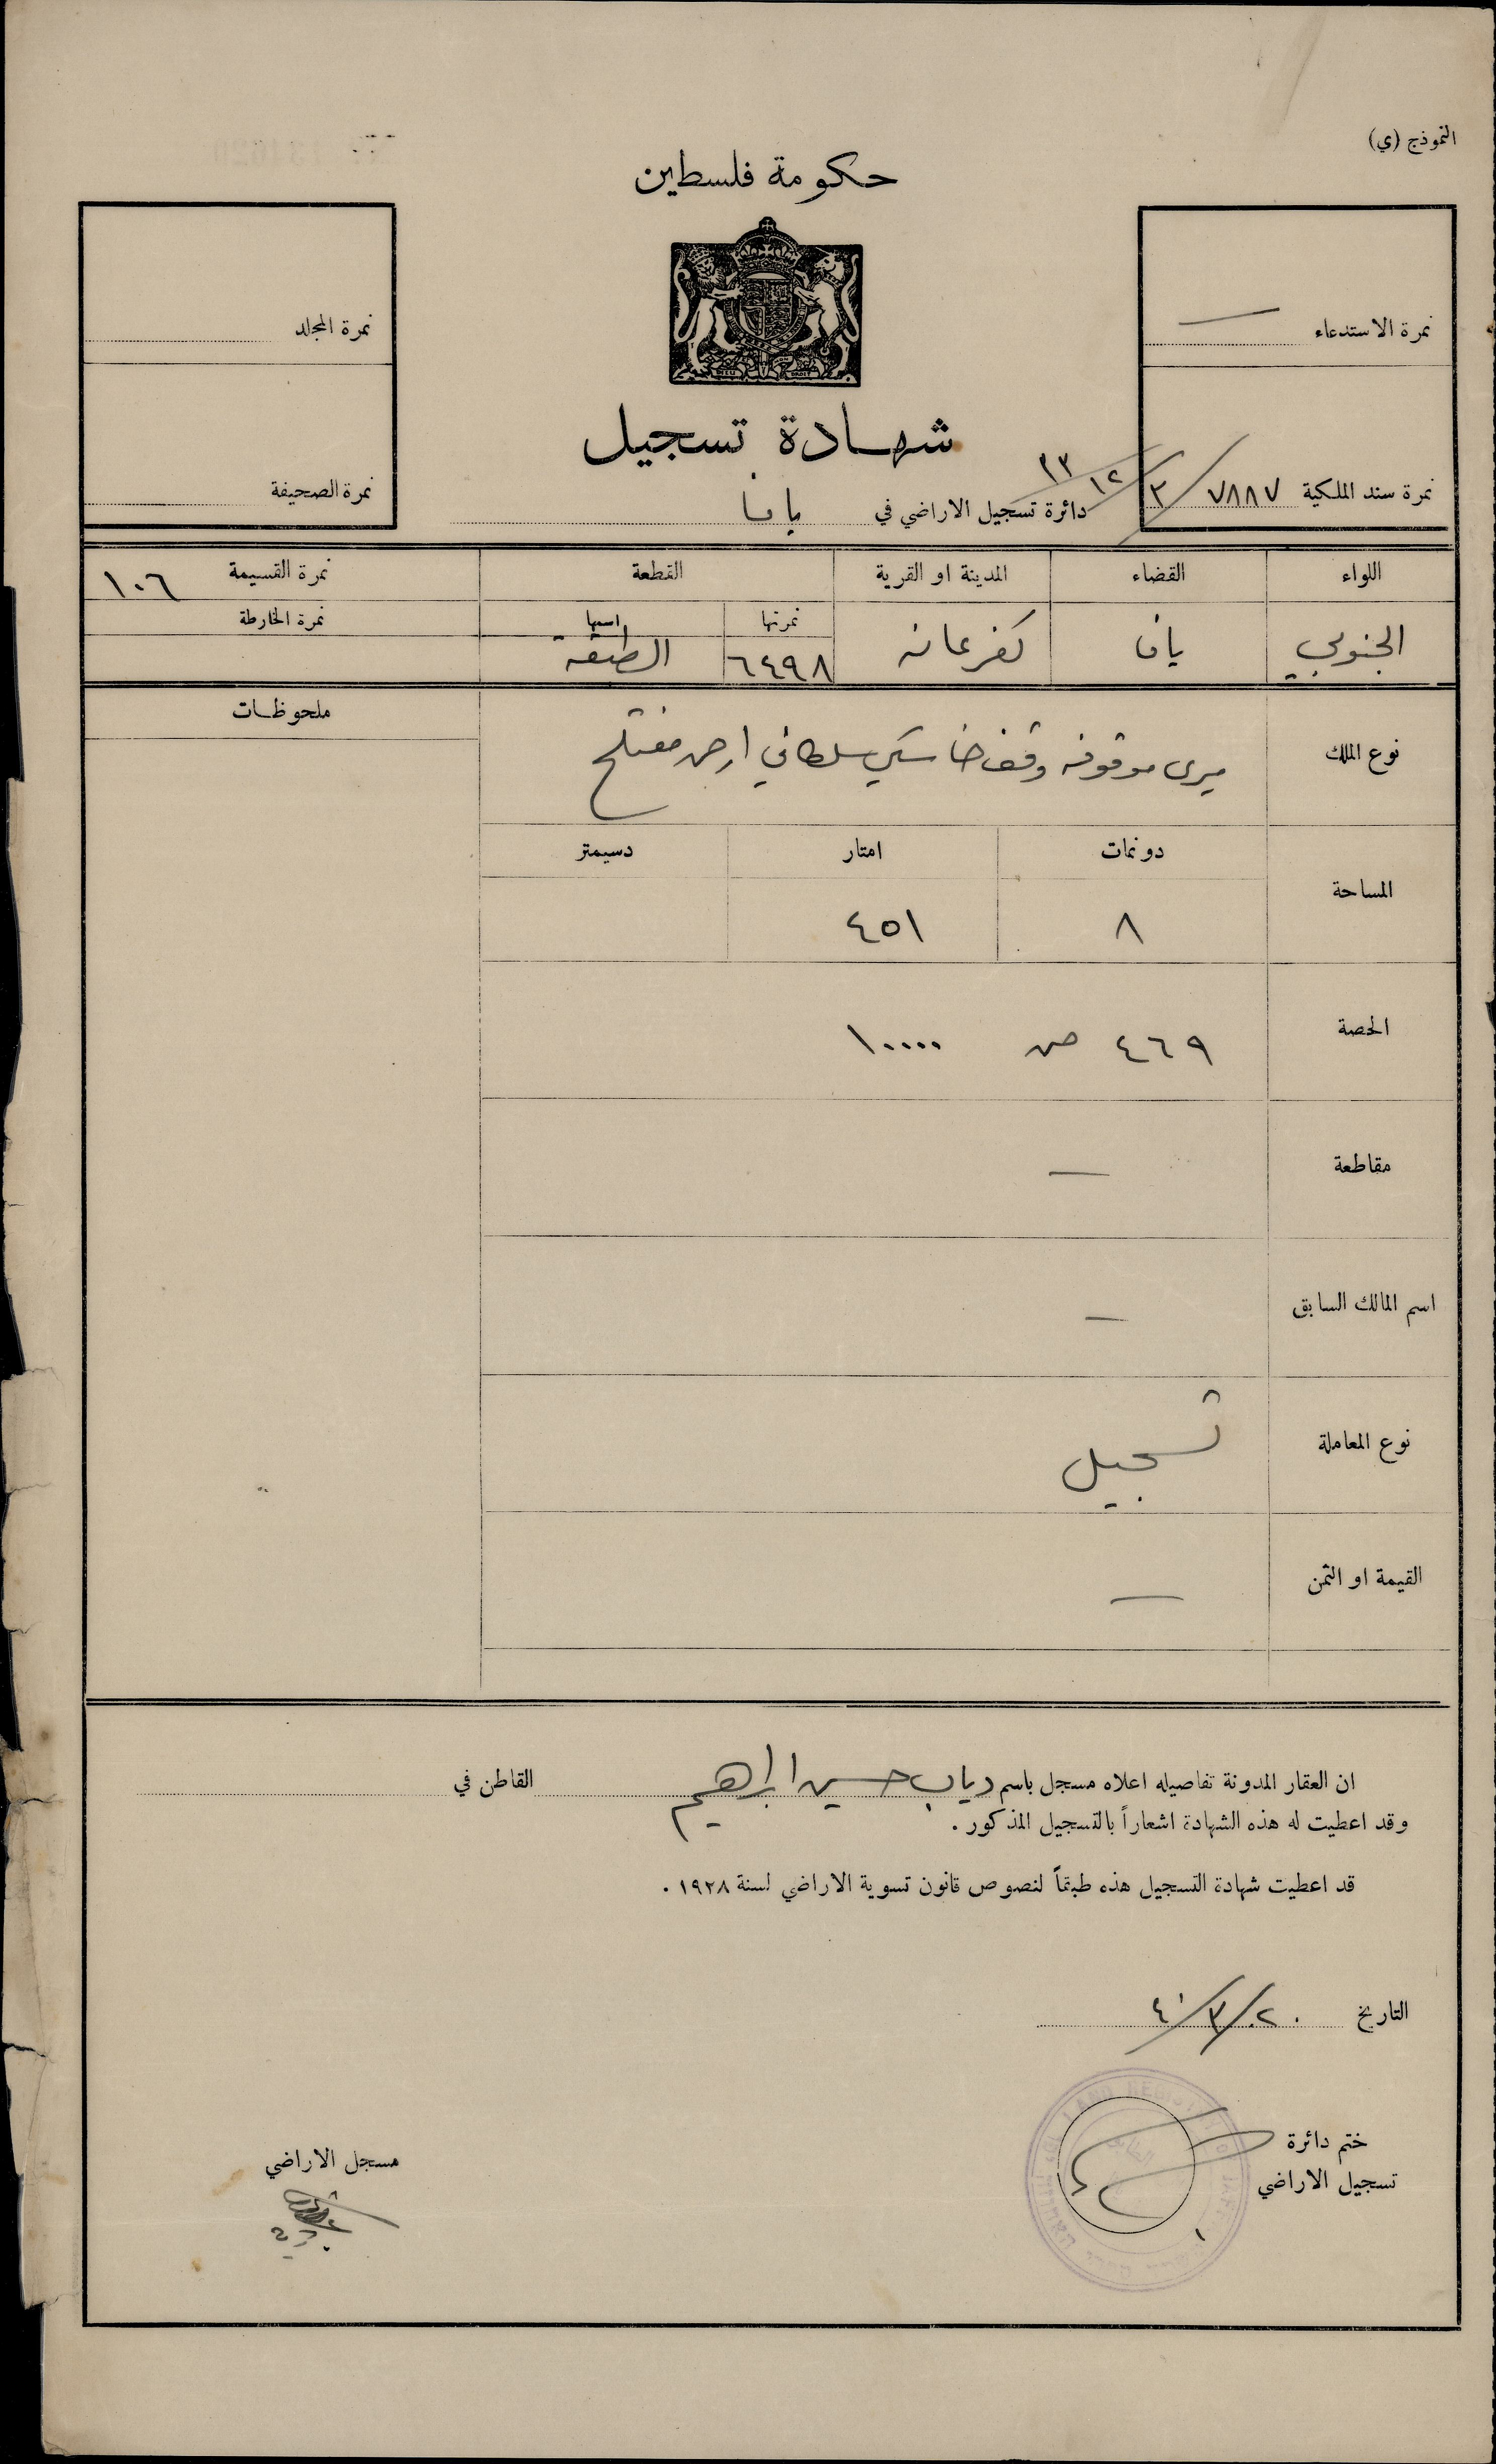 النموذج (ي)
حكومة فلسطين
نمرة الاستدعاء —
نمرة المجلد
شهادة تسجيل
نمرة سند الملكية ٧٨٨٧/٣/١٢/٣٣
دائرة تسجيل الاراضي في يافا
نمرة الصحيفة
اللواء القضاء المدينة او القرية القطعة نمرة القسيمة ١٠٦
نمرتها اسمها نمرة الخارطة
الجنوبي يافا كفرعانه ٦٤٩٨
ملحوظات
نوع الملك ميرى موقوفه وقف خاسكي سلطاني ارض مفتلح
المساحة دونمات امتار دسيمتر
٨ ٤٥١
الحصة ٤٦٩ من ١٠٠٠٠
مقاطعة —
اسم المالك السابق —
نوع المعاملة تسجيل
القيمة او الثمن —
ان العقار المدونة تفاصيله اعلاه مسجل باسم دياب حسين ابراهيم القاطن في
وقد اعطيت له هذه الشهادة اشعاراً بالتسجيل المذكور .
قد اعطيت شهادة التسجيل هذه طبقاً لنصوص قانون تسوية الاراضي لسنة ١٩٢٨ .
التاريخ ٢٠/٣/٤٠
ختم دائرة
تسجيل الاراضي
مسجل الاراضي